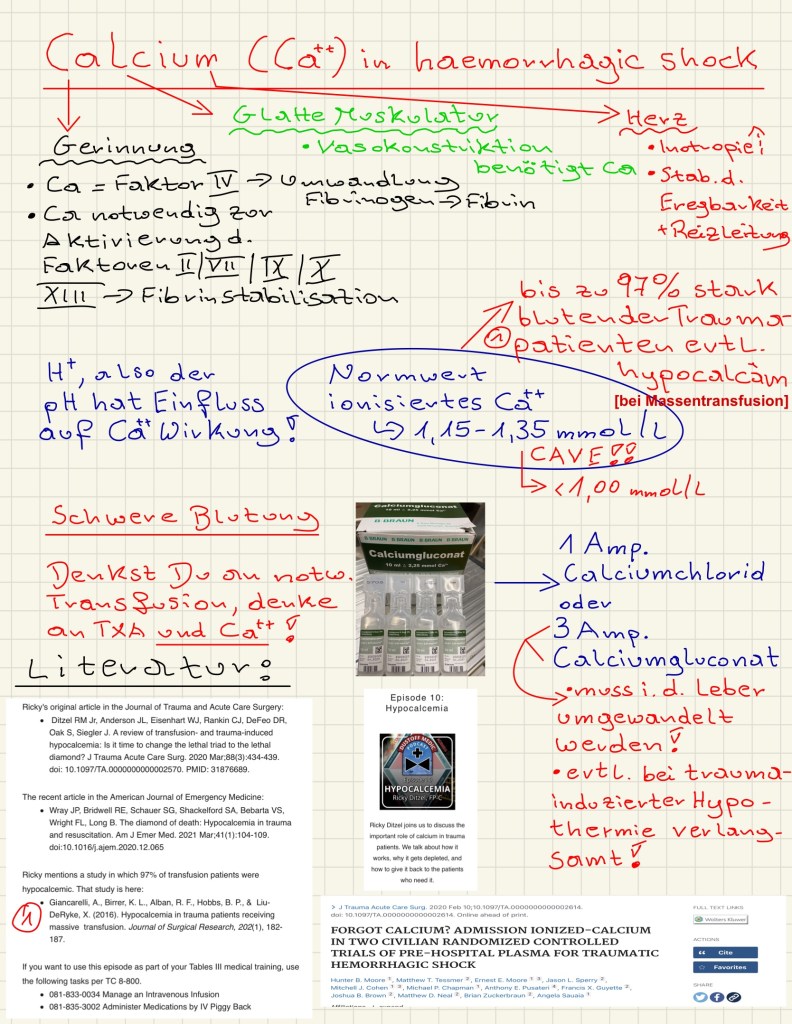 Calcium (Ca++) in haemorrhagic shock
Gerinnung
• Ca = Faktor IV → Umwandlung
Fibrinogen → Fibrin
• Ca notwendig zur
Aktivierung d.
Faktoren II/VII/IX/X
XIII → Fibrinstabilisation
Glatte Muskulatur
• Vasokonstriktion
benötigt Ca
Herz
• Inotropie!
• Stab. d.
Eregbarkeit
+ Reizleitung
bis zu 97% stark
blutender Trauma-
patienten evtl.
hypocalcäm
[bei Massentransfusion]
1
H+, also der
pH hat Einfluss
auf Ca++ Wirkung!
Normwert
ionisiertes Ca++
↳ 1,15-1,35 mmol/L
CAVE!!
↳ <1,00 mmol/L
Schwere Blutung
Denkst Du an notw.
Transfusion, denke
an TXA und Ca++!
Calciumgluconat
B BRAUN
Calciumgluconat
1 Amp.
Calciumchlorid
oder
3 Amp.
Calciumgluconat
• muss i. d. Leber
umgewandelt
werden!
• evtl. bei trauma-
induzierter Hypo-
thermie verlang-
samt!
Literatur:
Ricky's original article in the Journal of Trauma and Acute Care Surgery:
• Ditzel RM Jr, Anderson JL, Eisenhart WJ, Rankin CJ, DeFeo DR,
Oak S, Siegler J. A review of transfusion- and trauma-induced
hypocalcemia: Is it time to change the lethal triad to the lethal
diamond? J Trauma Acute Care Surg. 2020 Mar;88(3):434-439.
doi: 10.1097/TA.0000000000002570. PMID: 31876689.
The recent article in the American Journal of Emergency Medicine:
• Wray JP, Bridwell RE, Schauer SG, Shackelford SA, Bebarta VS,
Wright FL, Long B. The diamond of death: Hypocalcemia in trauma
and resuscitation. Am J Emer Med. 2021 Mar;41(1):104-109.
doi:10.1016/j.ajem.2020.12.065
Ricky mentions a study in which 97% of transfusion patients were
hypocalcemic. That study is here:
1
• Giancarelli, A., Birrer, K. L., Alban, R. F., Hobbs, B. P., & Liu-
DeRyke, X. (2016). Hypocalcemia in trauma patients receiving
massive transfusion. Journal of Surgical Research, 202(1), 182-
187.
If you want to use this episode as part of your Tables III medical training, use
the following tasks per TC 8-800.
• 081-833-0034 Manage an Intravenous Infusion
• 081-835-3002 Administer Medications by IV Piggy Back
Episode 10:
Hypocalcemia
DUSTOFF MEDIC
PODCAST
HYPOCALCEMIA
Ricky Ditzel, FP-C
Ricky Ditzel joins us to discuss the
important role of calcium in trauma
patients. We talk about how it
works, why it gets depleted, and
how to give it back to the patients
who need it.
> J Trauma Acute Care Surg. 2020 Feb 10;10.1097/TA.0000000000002614.
doi: 10.1097/TA.0000000000002614. Online ahead of print.
FORGOT CALCIUM? ADMISSION IONIZED-CALCIUM
IN TWO CIVILIAN RANDOMIZED CONTROLLED
TRIALS OF PRE-HOSPITAL PLASMA FOR TRAUMATIC
HEMORRHAGIC SHOCK
Hunter B. Moore 1, Matthew T. Tessmer 2, Ernest E. Moore 1 3, Jason L. Sperry 2,
Mitchell J. Cohen 1 3, Michael P. Chapman 1, Anthony E. Pusateri 4, Francis X. Guyette 2,
Joshua B. Brown 2, Matthew D. Neal 2, Brian Zuckerbraun 2, Angela Sauaia 1
FULL TEXT LINKS
Wolters Kluwer
ACTIONS
Cite
Favorites
SHARE